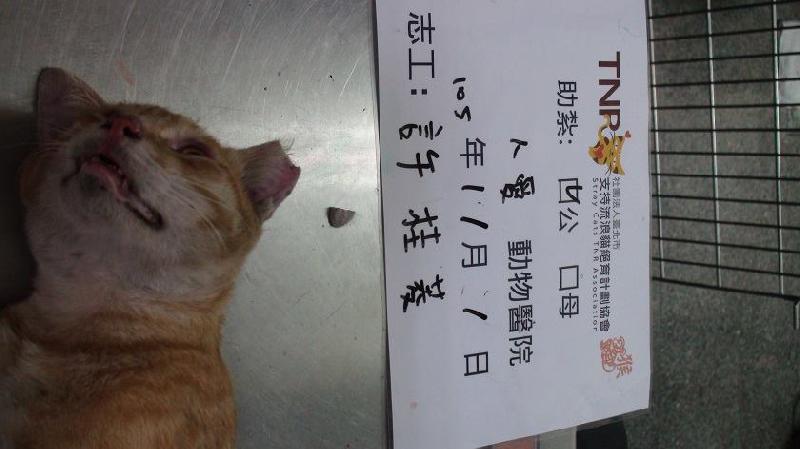 TNR
社團法人臺北市
支持流浪貓絕育計劃協會
Stray Cats TNR Association
助紮: ☑公 □母
人愛 動物醫院
105年11月1日
志工: 許桂菱